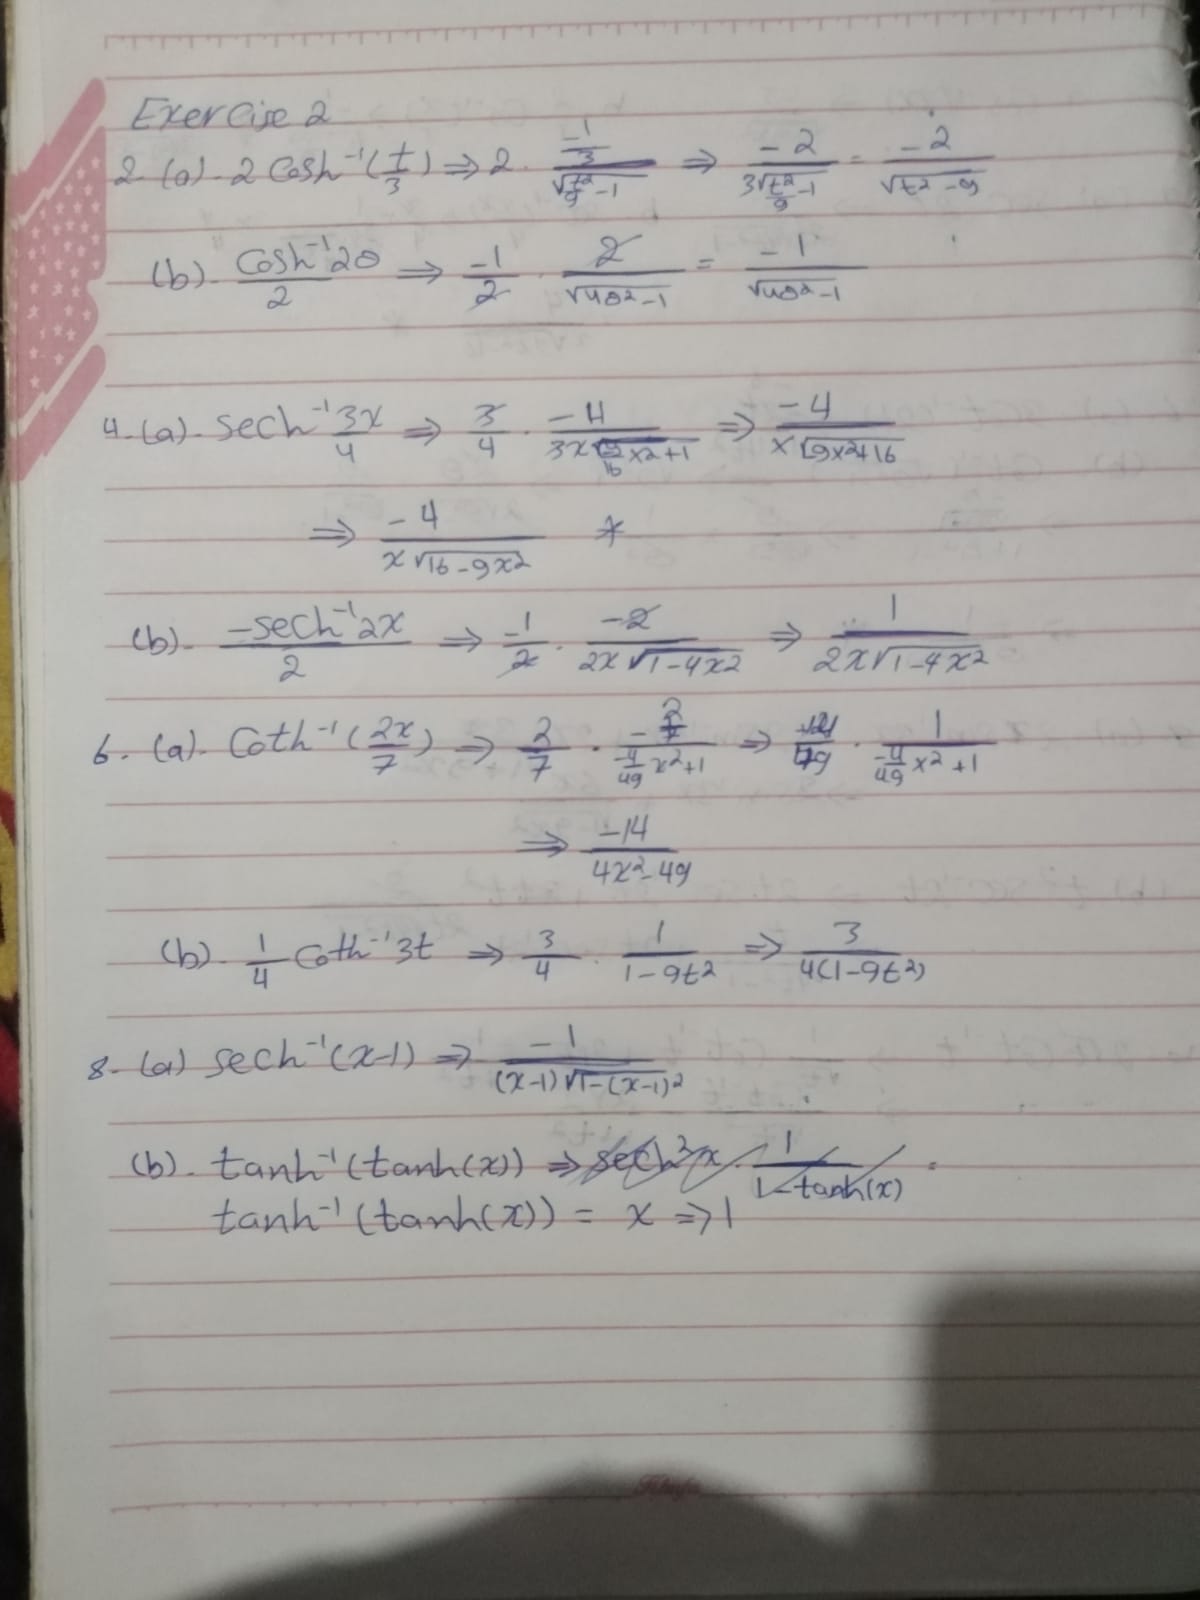 Exercise 2
2. (a). 2 cosh⁻¹(t/3) ⇒ 2 · (-1/3)/√(t²/9 - 1) ⇒ -2/(3√(t²/9 - 1)) = -2/√(t² - 9)
(b). cosh⁻¹2θ/2 ⇒ -1/2 · 2/√(4θ² - 1) = -1/√(4θ² - 1)
4. (a). sech⁻¹ 3x/4 ⇒ 3/4 · -4/(3x√(9/16 x² + 1)) ⇒ -4/(x√(9x² + 16))
⇒ -4/(x√(16 - 9x²)) *
(b). -sech⁻¹2x/2 ⇒ -1/2 · -2/(2x√(1 - 4x²)) ⇒ 1/(2x√(1 - 4x²))
6. (a). Coth⁻¹(2x/7) ⇒ 2/7 · /(-4/49 x² + 1) ⇒ /49 · 1/(-4/49 x² + 1)
⇒ -14/(4x² - 49)
(b). 1/4 Coth⁻¹3t ⇒ 3/4 · 1/(1 - 9t²) ⇒ 3/(4(1 - 9t²))
8. (a) sech⁻¹(x-1) ⇒ -1/((x-1)√(1-(x-1)²))
(b). tanh⁻¹(tanh(x)) ⇒ sech²x · 1/(1 - tanh(x)) =
tanh⁻¹(tanh(x)) = x ⇒ 1